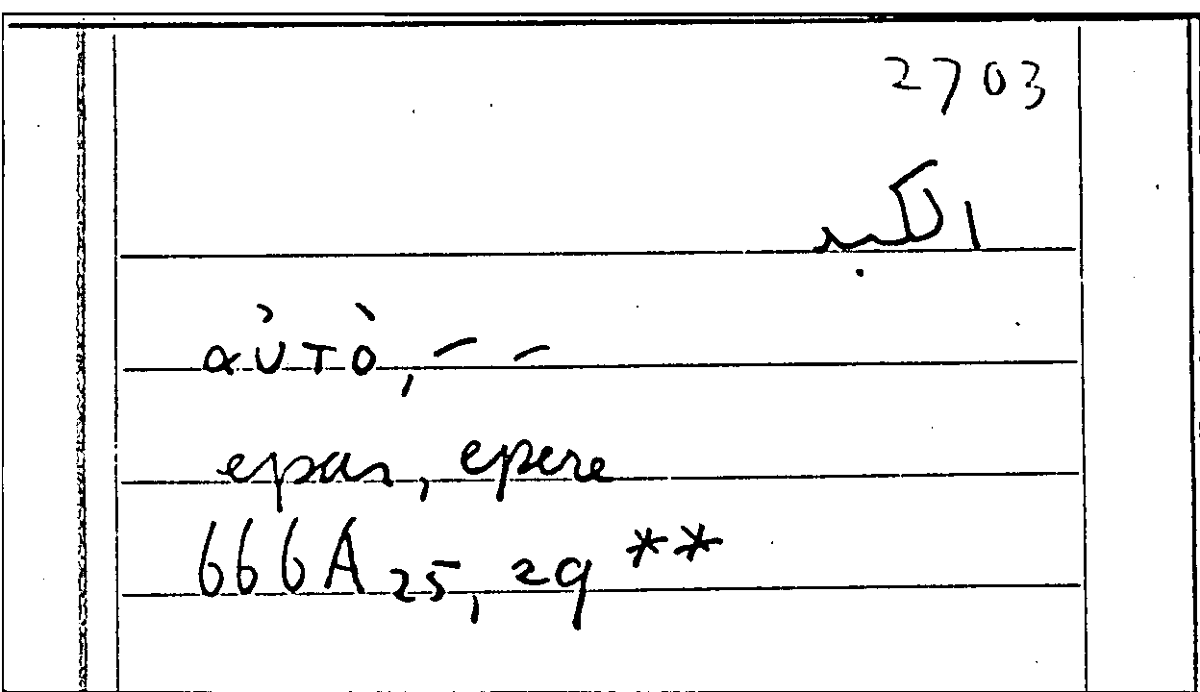 2703
الكبد
αὐτὸ, – –
epar, epere
666A 25, 29 **